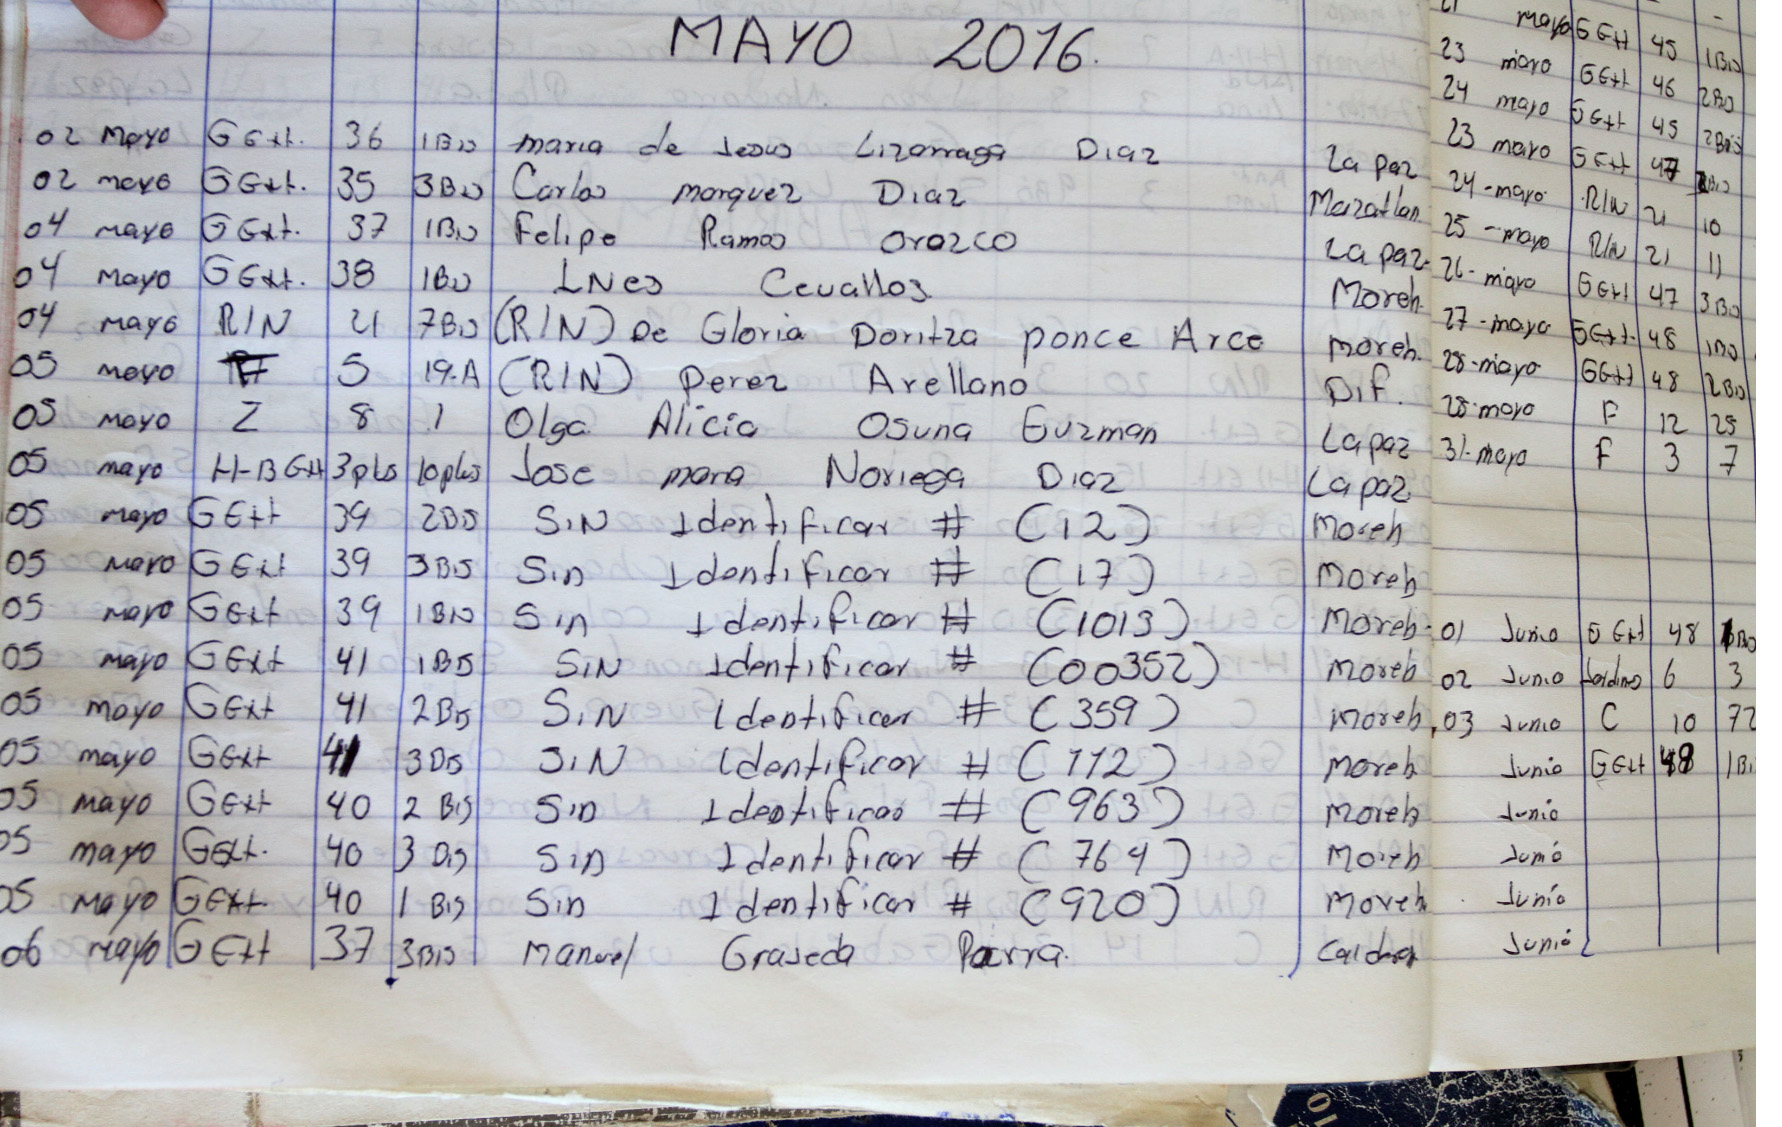 MAYO 2016.
02 mayo G Ext. 36 1Bis maria de Jesus Lizarraga Diaz La paz
02 mayo G Ext. 35 3Bis Carlos marquez Diaz Mazatlan
04 mayo G Ext. 37 1Bis Felipe Ramos Orozco La paz
04 mayo G Ext. 38 1Bis INes Cevallos Moreh
04 mayo R/N 21 7Bis (R/N) De Gloria Doritza ponce Arce moreh.
05 mayo 5 19-A (R/N) perez Arellano Dif.
05 mayo Z 8 1 Olga Alicia Osuna Guzman La paz
05 mayo H-BGH 3pls 10pls Jose maria Noriega Diaz La paz
05 mayo G Ext 39 2Bis SiN Identificar # (12) Moreh
05 mayo G Ext 39 3Bis Sin Identificar # (17) moreh
05 mayo G Ext 39 1Bis Sin Identificar # (1013) Moreb
05 mayo G Ext 41 1Bis SiN Identificar # (00352) moreb
05 mayo G Ext 41 2Bis SiN Identificar # (359) moreh
05 mayo G Ext 41 3Bis SiN Identificar # (112) moreb
05 mayo G Ext 40 2 Bis Sin Identificar # (963) moreb
05 mayo G Ext. 40 3 Bis Sin Identificar # (764) Moreh
05 mayo G Ext. 40 1 Bis Sin Identificar # (920) Moreh
06 mayo G Ext 37 3Bis manuel Grajeda Parra.
21 mayo G Ext 45 1Bis
23 mayo G Ext 46 2Bis
24 mayo G Ext 45 2Bis
23 mayo G Ext 47
24-mayo R/N 21 10
25-mayo R/N 21 11
26-mayo G Ext 47 3Bis
27-mayo G Ext. 48 1Bis
28-mayo G Ext 48 2Bis
28-mayo F 12 25
31-mayo F 3 7
01 Junio G Ext 48
02 Junio Jardines 6 3
03 Junio C 10 72
Junio G Ext 48 1Bi
Junio
Junio
Junio
Junio
10